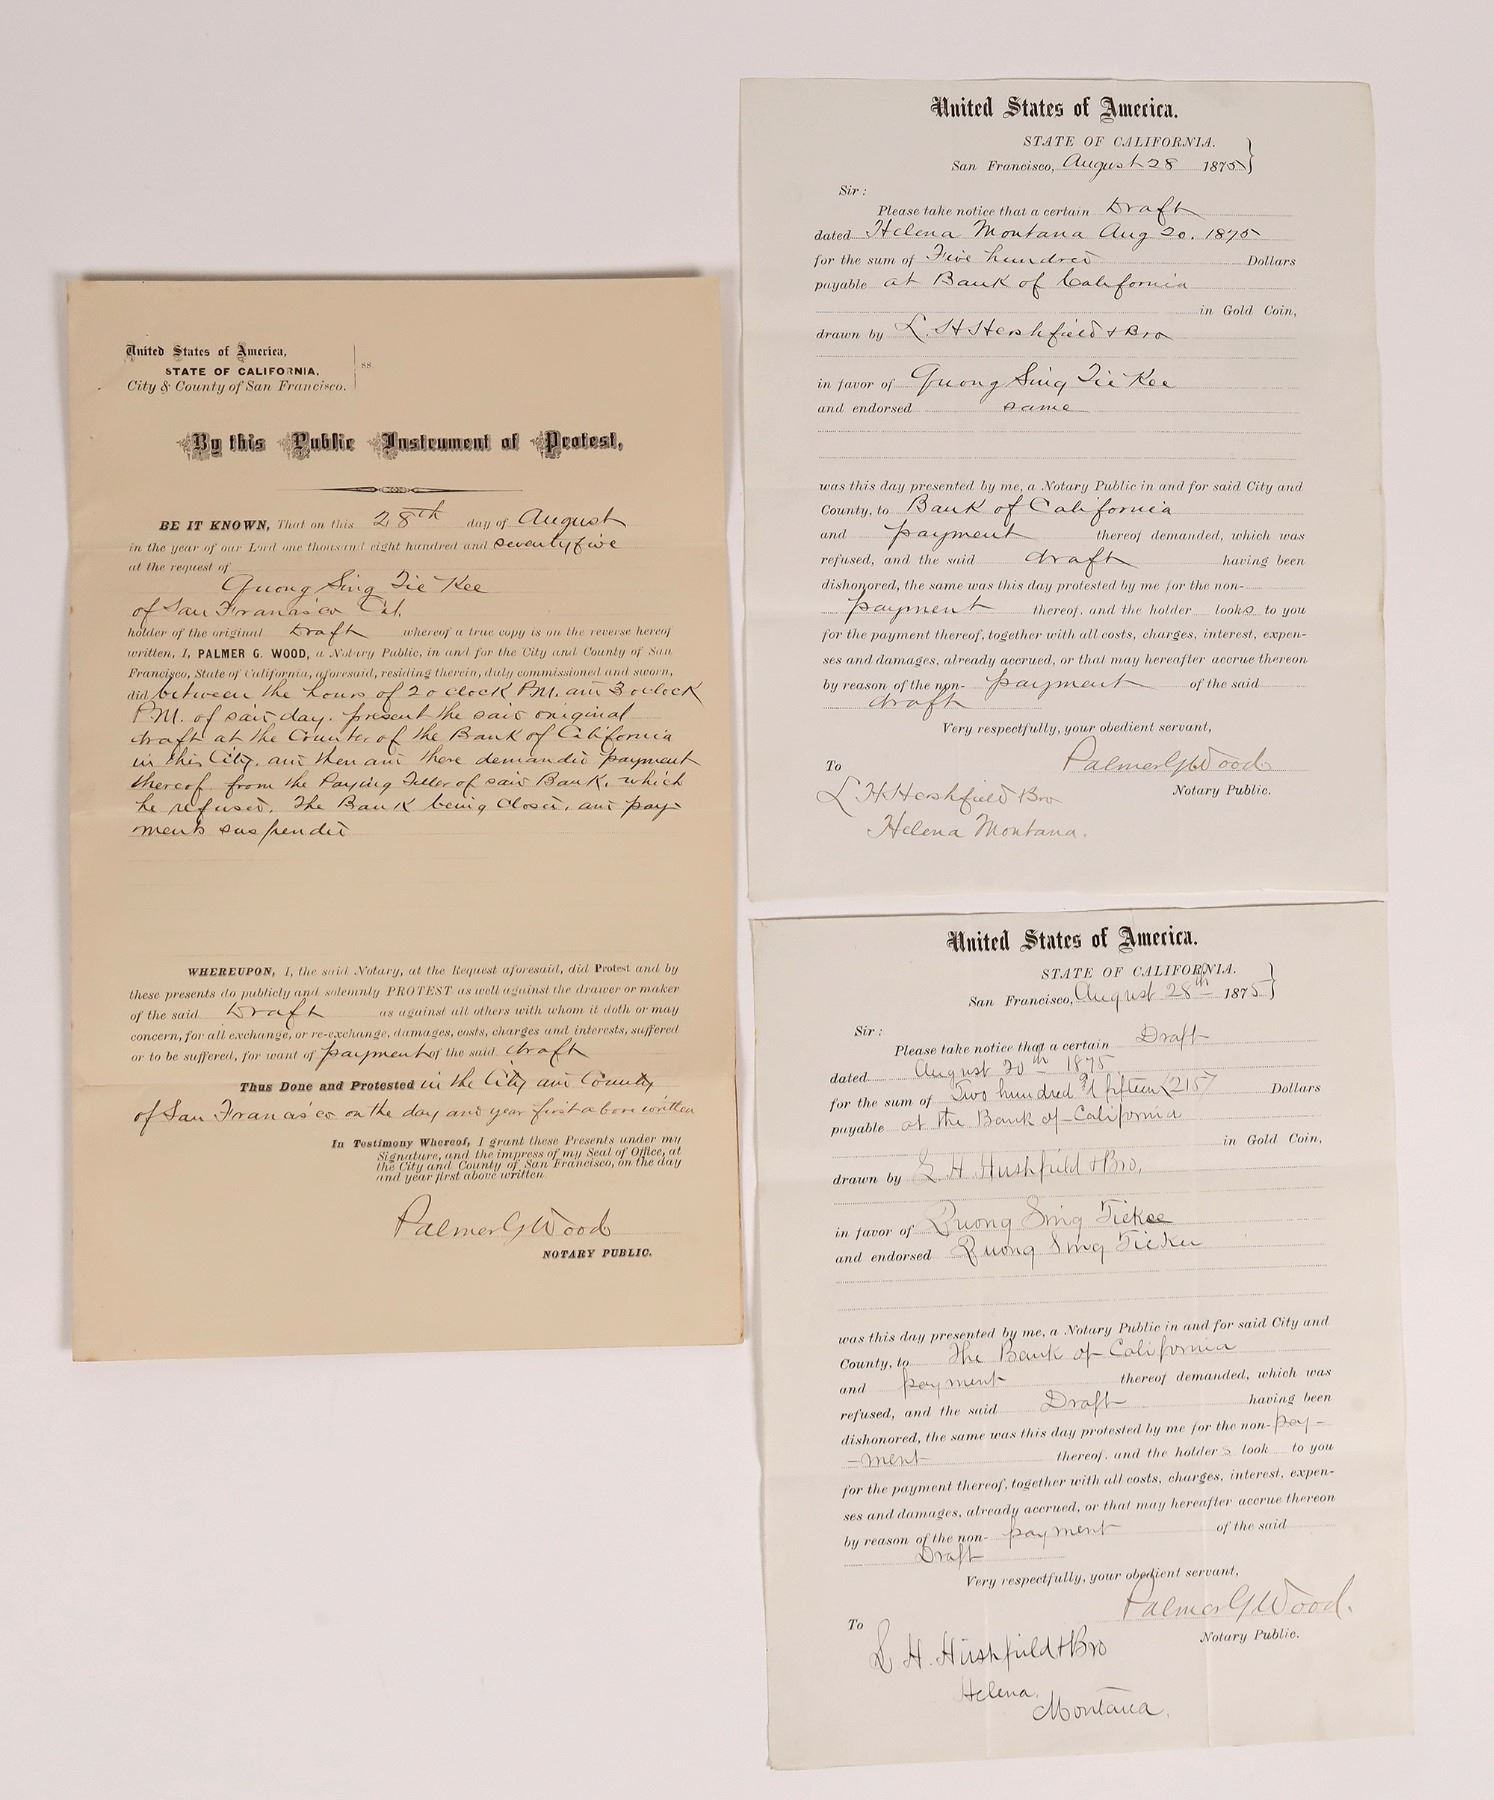 United States of America,
STATE OF CALIFORNIA,
City & County of San Francisco.
ss.
By this Public Instrument of Protest,
BE IT KNOWN, That on this 28th day of August
in the year of our Lord one thousand eight hundred and seventy five
at the request of
Quong Sing Tie Kee
of San Francisco Cal.
holder of the original Draft whereof a true copy is on the reverse hereof
written, I, PALMER G. WOOD, a Notary Public, in and for the City and County of San
Francisco, State of California, aforesaid, residing therein, duly commissioned and sworn,
did between the hours of 2 o clock P.M. and 3 o clock
P.M. of said day. present the said original
draft at the Counter of the Bank of California
in this City, and then and there demanded payment
thereof from the Paying Teller of said Bank, which
he refused. The Bank being closed, and pay-
ments suspended
WHEREUPON, I, the said Notary, at the Request aforesaid, did Protest and by
these presents do publicly and solemnly PROTEST as well against the drawer or maker
of the said Draft as against all others with whom it doth or may
concern, for all exchange, or re-exchange, damages, costs, charges and interests, suffered
or to be suffered, for want of payment of the said draft
Thus Done and Protested in the City and County
of San Francisco on the day and year first above written
In Testimony Whereof, I grant these Presents under my
Signature, and the impress of my Seal of Office, at
the City and County of San Francisco, on the day
and year first above written.
Palmer G Wood
NOTARY PUBLIC.
United States of America.
STATE OF CALIFORNIA.
San Francisco, August 28 1875
Sir:
Please take notice that a certain Draft
dated Helena Montana Aug 20. 1875
for the sum of Five hundred Dollars
payable at Bank of California
in Gold Coin,
drawn by L. H Hershfield & Bro
in favor of Quong Sing Tie Kee
and endorsed same
was this day presented by me, a Notary Public in and for said City and
County, to Bank of California
and payment thereof demanded, which was
refused, and the said draft having been
dishonored, the same was this day protested by me for the non-
payment thereof, and the holder looks to you
for the payment thereof, together with all costs, charges, interest, expen-
ses and damages, already accrued, or that may hereafter accrue thereon
by reason of the non- payment of the said
draft
Very respectfully, your obedient servant,
Palmer G Wood
Notary Public.
To
L. H Hershfield & Bro
Helena Montana.
United States of America.
STATE OF CALIFORNIA.
San Francisco, August 28th 1875
Sir:
Please take notice that a certain Draft
dated August 20th 1875
for the sum of Two hundred & fifteen (215) Dollars
payable at the Bank of California
in Gold Coin,
drawn by L. H. Hirshfield & Bro,
in favor of Quong Sing Tickee
and endorsed Quong Sing Tickee
was this day presented by me, a Notary Public in and for said City and
County, to The Bank of California
and payment thereof demanded, which was
refused, and the said Draft having been
dishonored, the same was this day protested by me for the non- pay-
-ment thereof, and the holders look to you
for the payment thereof, together with all costs, charges, interest, expen-
ses and damages, already accrued, or that may hereafter accrue thereon
by reason of the non- payment of the said
Draft
Very respectfully, your obedient servant,
Palmer G Wood.
Notary Public.
To
L. H. Hirshfield & Bro
Helena,
Montana,